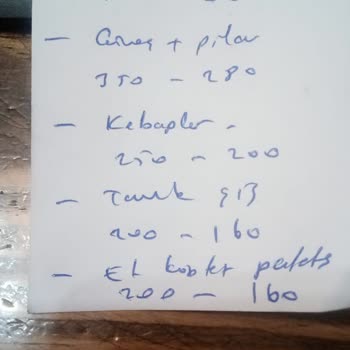 - Güveç + pilav
350 - 280
- Kebaplar -
250 - 200
- Tavuk şiş
200 - 160
- Et
200 - 160